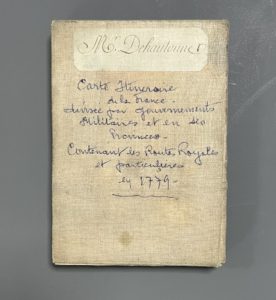 Mr. Dehautonne
Carte Itineraire
de la France.
divisée par Gouvernements
Militaires et en ses
Provinces.
Contenant les Route Royales
et particulières
en 1779-